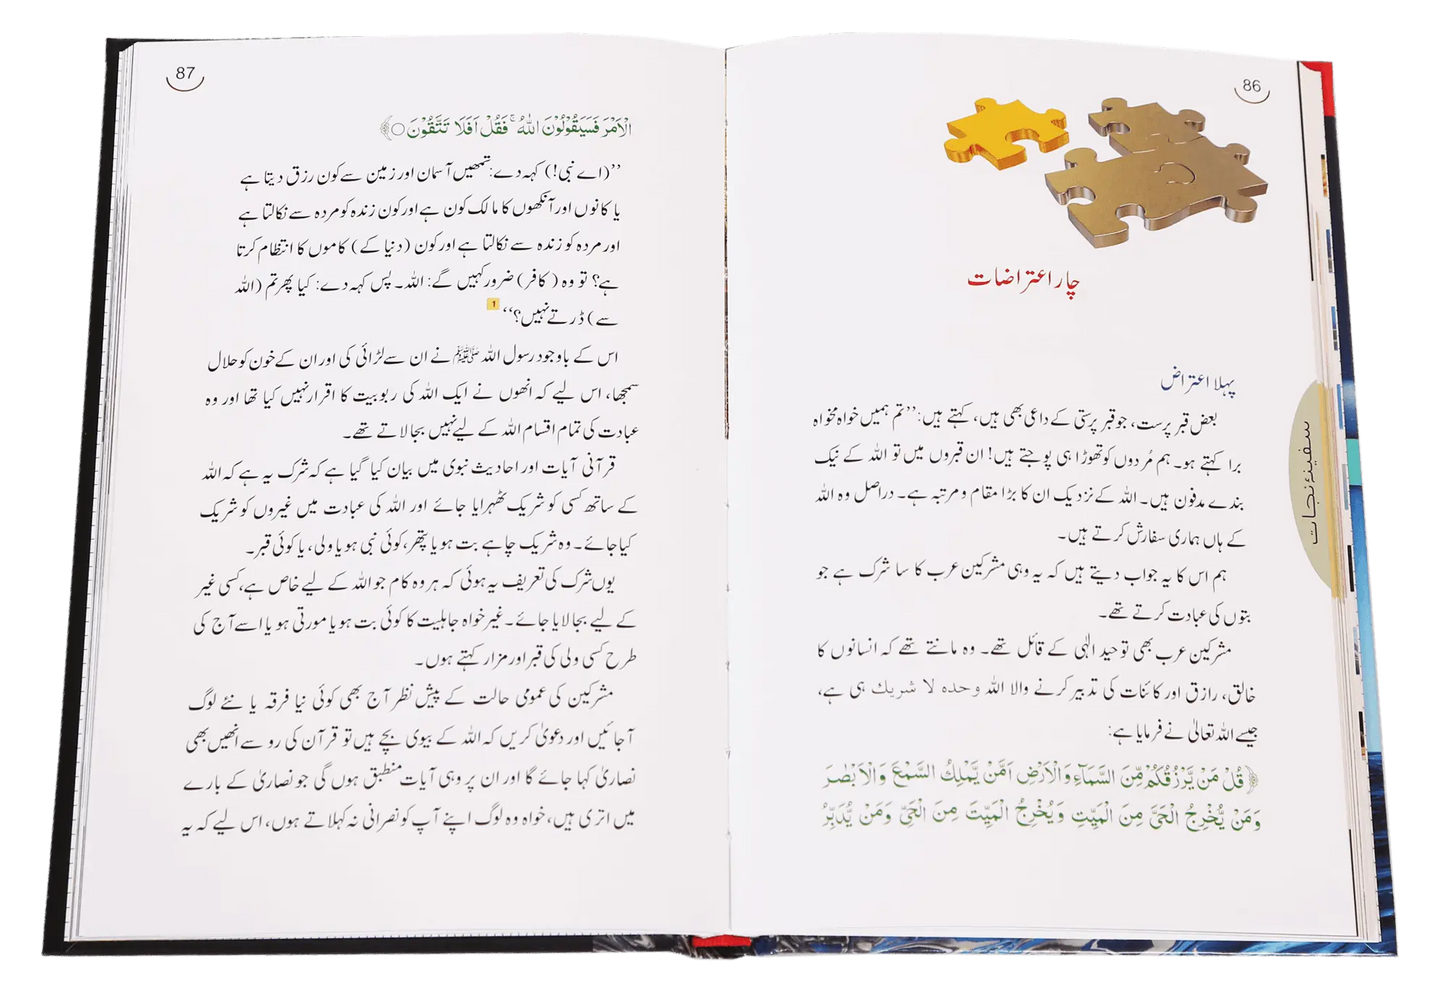 86
چار اعتراضات
پہلا اعتراض
بعض قبر پرست، جو قبر پرستی کے داعی بھی ہیں، کہتے ہیں: ’’تم ہمیں خواہ مخواہ
برا کہتے ہو۔ ہم مُردوں کو تھوڑا ہی پوجتے ہیں! ان قبروں میں تو اللہ کے نیک
بندے مدفون ہیں۔ اللہ کے نزدیک ان کا بڑا مقام و مرتبہ ہے۔ دراصل وہ اللہ
کے ہاں ہماری سفارش کرتے ہیں۔
ہم اس کا یہ جواب دیتے ہیں کہ یہ وہی مشرکین عرب کا سا شرک ہے جو
بتوں کی عبادت کرتے تھے۔
مشرکین عرب بھی توحید الٰہی کے قائل تھے۔ وہ مانتے تھے کہ انسانوں کا
خالق، رازق اور کائنات کی تدبیر کرنے والا اللہ وحدہ لا شریك ہی ہے،
جیسے اللہ تعالیٰ نے فرمایا ہے:
﴿قُلْ مَنْ يَّرْزُقُكُمْ مِّنَ السَّمَآءِ وَالْاَرْضِ اَمَّنْ يَّمْلِكُ السَّمْعَ وَالْاَبْصٰرَ
وَمَنْ يُّخْرِجُ الْحَيَّ مِنَ الْمَيِّتِ وَيُخْرِجُ الْمَيِّتَ مِنَ الْحَيِّ وَمَنْ يُّدَبِّرُ
سفینۂ نجات
87
الْاَمْرَ فَسَيَقُوْلُوْنَ اللّٰهُ ۚ فَقُلْ اَفَلَا تَتَّقُوْنَ ○﴾
’’(اے نبی!) کہہ دے: تمھیں آسمان اور زمین سے کون رزق دیتا ہے
یا کانوں اور آنکھوں کا مالک کون ہے اور کون زندہ کو مردہ سے نکالتا ہے
اور مردہ کو زندہ سے نکالتا ہے اور کون (دنیا کے) کاموں کا انتظام کرتا
ہے؟ تو وہ (کافر) ضرور کہیں گے: اللہ۔ پس کہہ دے: کیا پھر تم (اللہ
سے) ڈرتے نہیں؟‘‘ 1
اس کے باوجود رسول اللہ ﷺ نے ان سے لڑائی کی اور ان کے خون کو حلال
سمجھا، اس لیے کہ انھوں نے ایک اللہ کی ربوبیت کا اقرار نہیں کیا تھا اور وہ
عبادت کی تمام اقسام اللہ کے لیے نہیں بجا لاتے تھے۔
قرآنی آیات اور احادیث نبوی میں بیان کیا گیا ہے کہ شرک یہ ہے کہ اللہ
کے ساتھ کسی کو شریک ٹھہرایا جائے اور اللہ کی عبادت میں غیروں کو شریک
کیا جائے۔ وہ شریک چاہے بت ہو یا پتھر، کوئی نبی ہو یا ولی، یا کوئی قبر۔
یوں شرک کی تعریف یہ ہوئی کہ ہر وہ کام جو اللہ کے لیے خاص ہے، کسی غیر
کے لیے بجا لایا جائے۔ غیر خواہ جاہلیت کا کوئی بت ہو یا مورتی ہو یا اسے آج کی
طرح کسی ولی کی قبر اور مزار کہتے ہوں۔
مشرکین کی عمومی حالت کے پیش نظر آج بھی کوئی نیا فرقہ یا نئے لوگ
آجائیں اور دعویٰ کریں کہ اللہ کے بیوی بچے ہیں تو قرآن کی رو سے انھیں بھی
نصاریٰ کہا جائے گا اور ان پر وہی آیات منطبق ہوں گی جو نصاریٰ کے بارے
میں اتری ہیں، خواہ وہ لوگ اپنے آپ کو نصرانی نہ کہلاتے ہوں، اس لیے کہ یہ